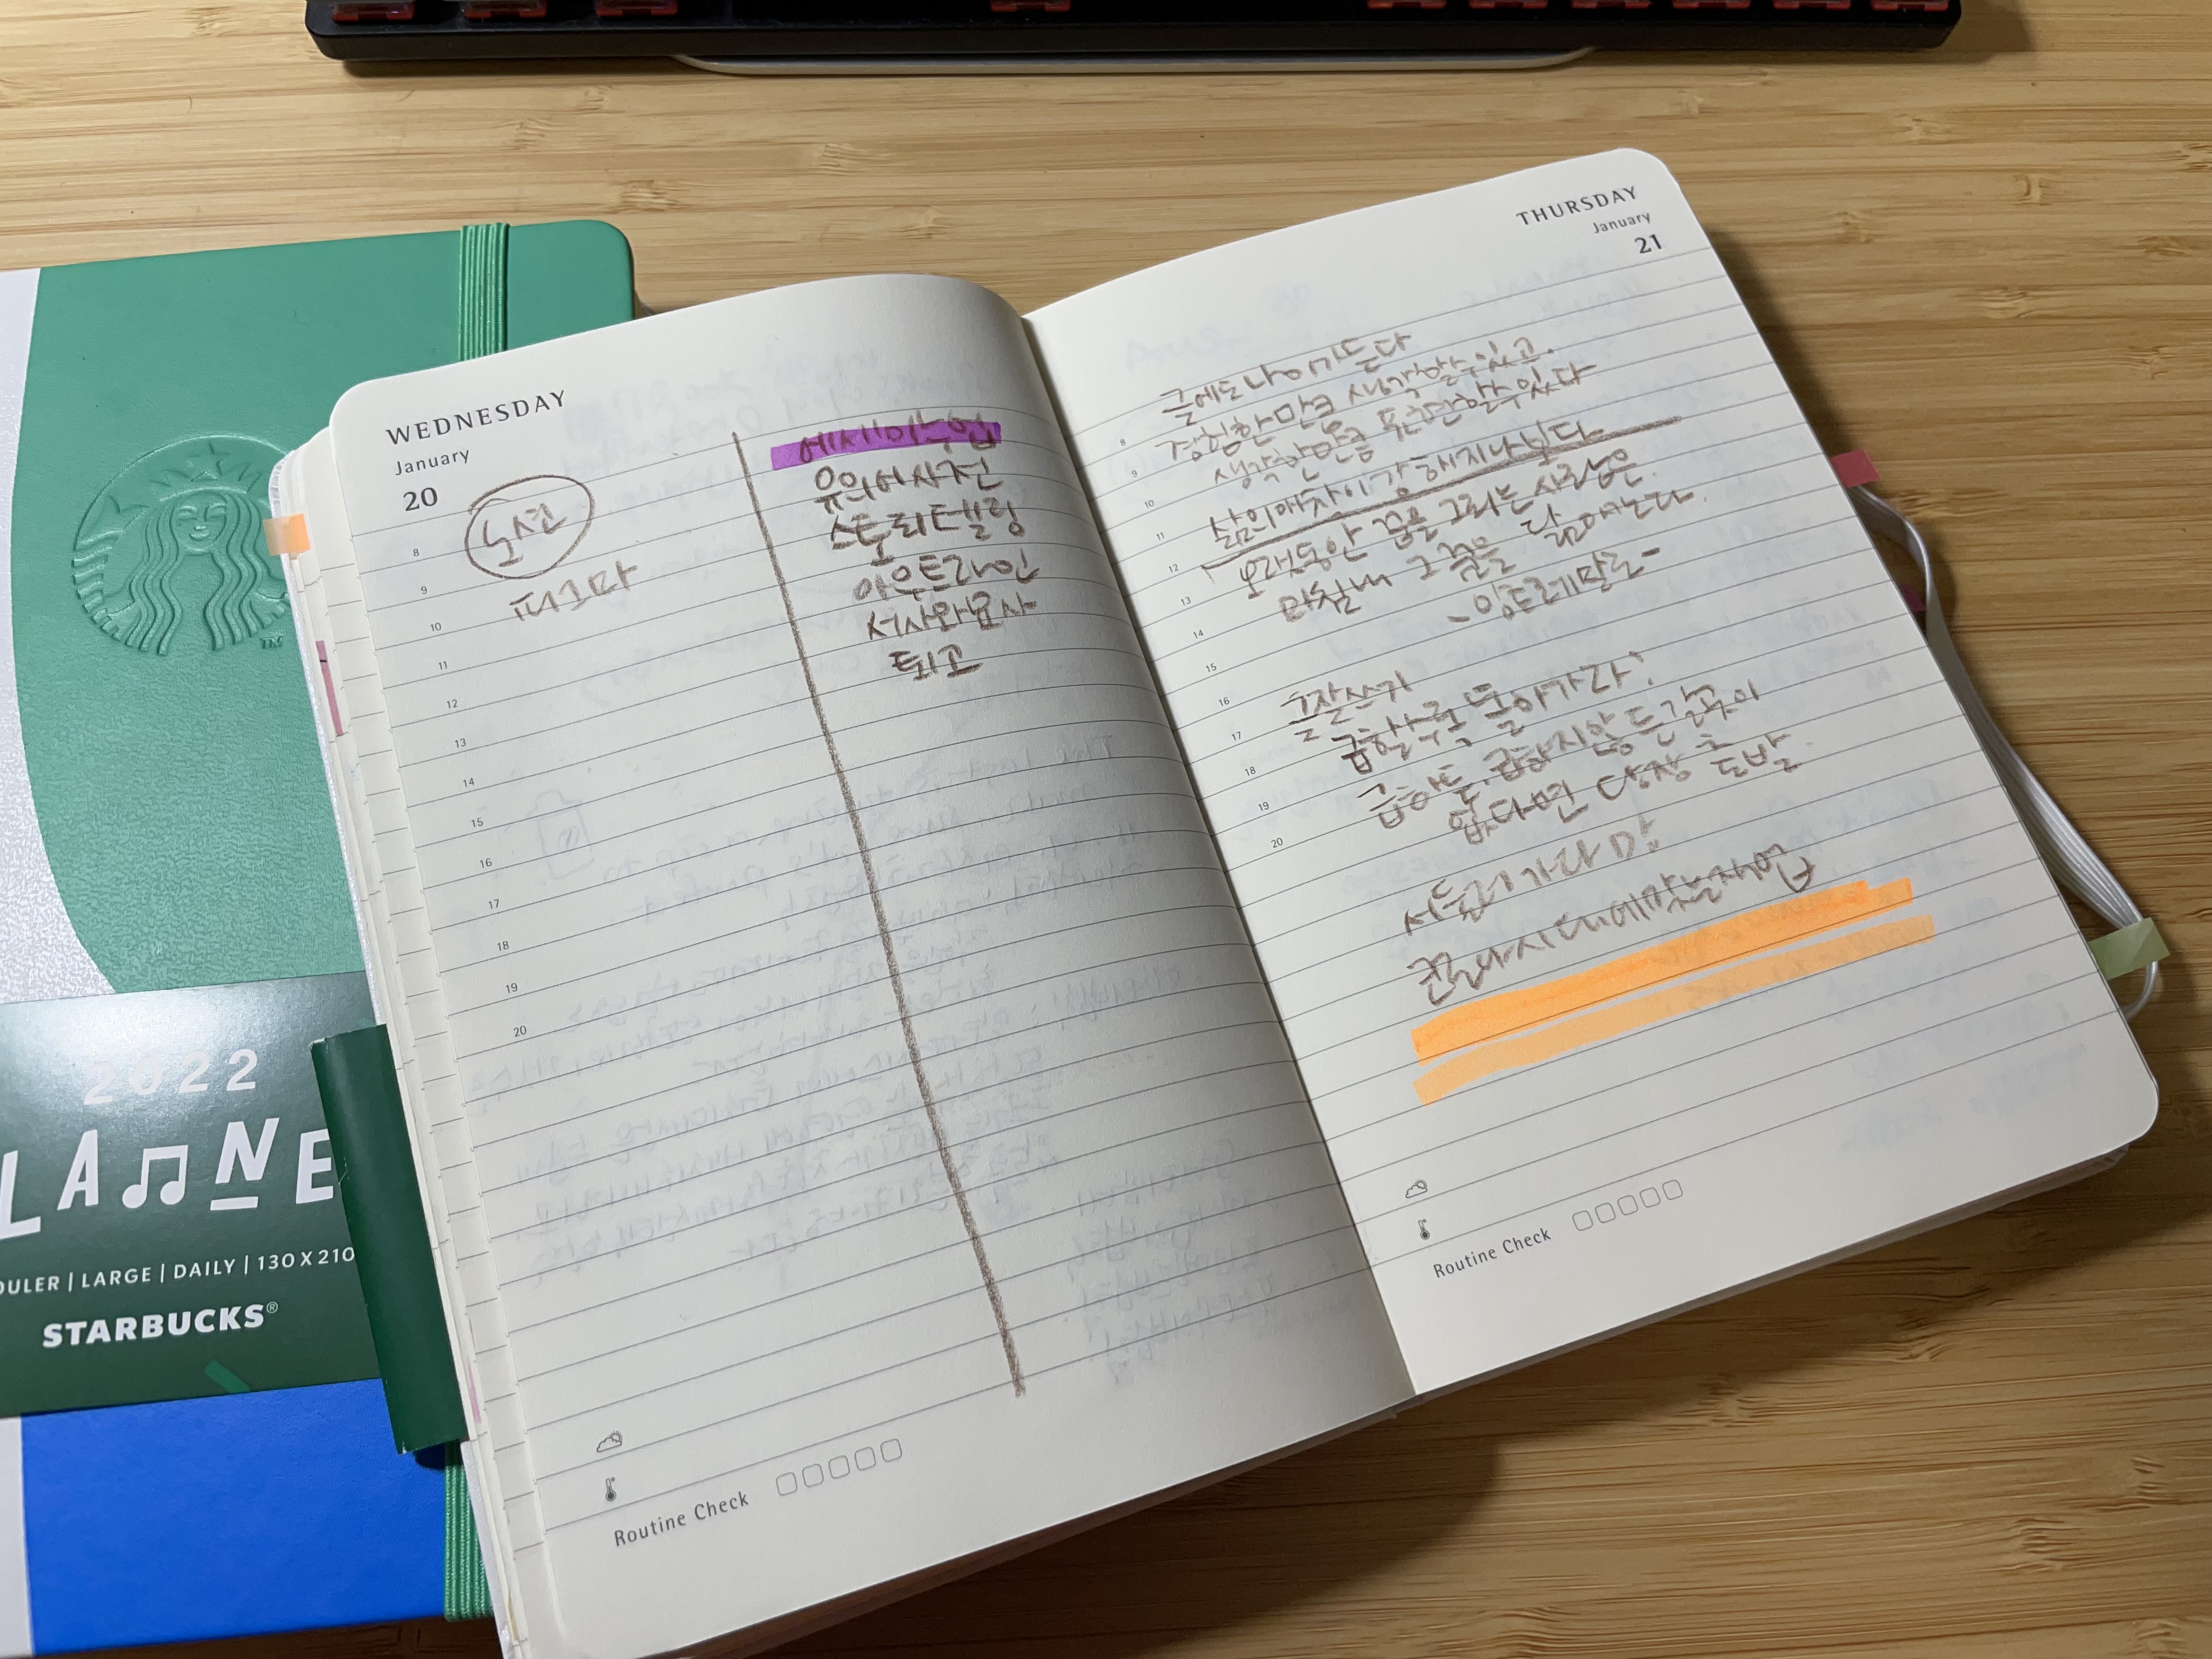 2022
LA♫NNE
OULER | LARGE | DAILY | 130 X 210
STARBUCKS®
TM
WEDNESDAY
January
20
노션
피그마
에세이 수업
유의어사전
스토리텔링
아우트라인
서사와묘사
퇴고
8
9
10
11
12
13
14
15
16
17
18
19
20
Routine Check
THURSDAY
January
21
글에도 나이가 든다
경험한 만큼 생각할 수 있고.
생각한 만큼 표현할 수 있다
삶의 애착이 강해지나보다
오랫동안 꿈을 그리는 사람은
마침내 그 꿈을 닮아간다.
- 앙드레말로 -
글잘쓰기
급할수록 돌아가라;
급하든. 급하지 않든 갈 곳이
없다면 당장 출발.
서둘러 가라 말
8
9
10
11
12
13
14
15
16
17
18
19
20
Routine Check